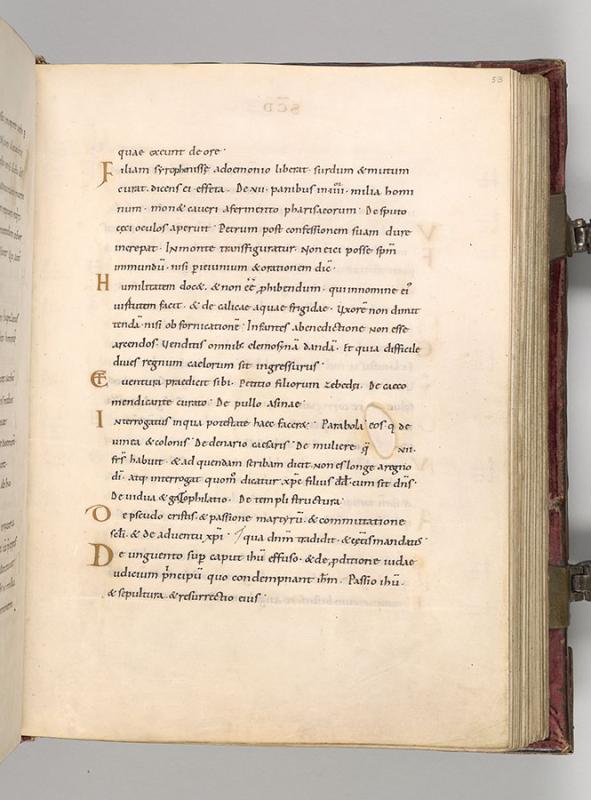 53
quae exeunt de ore·
Filiam syrophenissę a daemonio liberat· surdum & mutum
curat· dicens ei effeta· De VII· panibus in IIII· milia homi
num· mon& caueri a fermento pharisaeorum· De sputo
caeci oculos aperuit· Petrum post confessionem suam dure
increpat· In monte transfiguratur· Non eici posse spm̄
inmundū· nisi p ieiunium & orationem dic̄·
Humilitatem doc&, & non eē̄ phibendum· qui in nomine ei'
uirtutem facit· & de calice aquae frigidae· Vxorē non dimit
tendā· nisi ob fornicationē· Infantes a benedictione non esse
arcendos· Venditis omnib; elemosynā dandā· Et quia difficile
diues regnum caelorum sit ingressurus·
Et uentura praedicit sibi· Petitio filiorum zebedęi· De caeco
mendicante curato· De pullo asinae·
Interrogatus in qua potestate haec facer&· Parabola eos q̄ de
uinea & colonis· De denario caesaris· De muliere q̄ VII·
frs̄ habuit· & ad quendam scribam dicit· Non es longe a regno
dī· atq; interrogat quom̄ dicatur xp̄c filius dd̄· cum sit dn̄s·
De uidua & gazophilatio· De templi structura·
De pseudo cristis· & passione martyrū· & commutatione
scl̄i· & de aduentu xp̄i· qua dnm̄ tradidit·
De unguento sup caput ihū effuso· & de pditione iudae
iudicium principū quo condempnant ihm̄· Passio ihū·
& sepultura· & resurrectio eius·